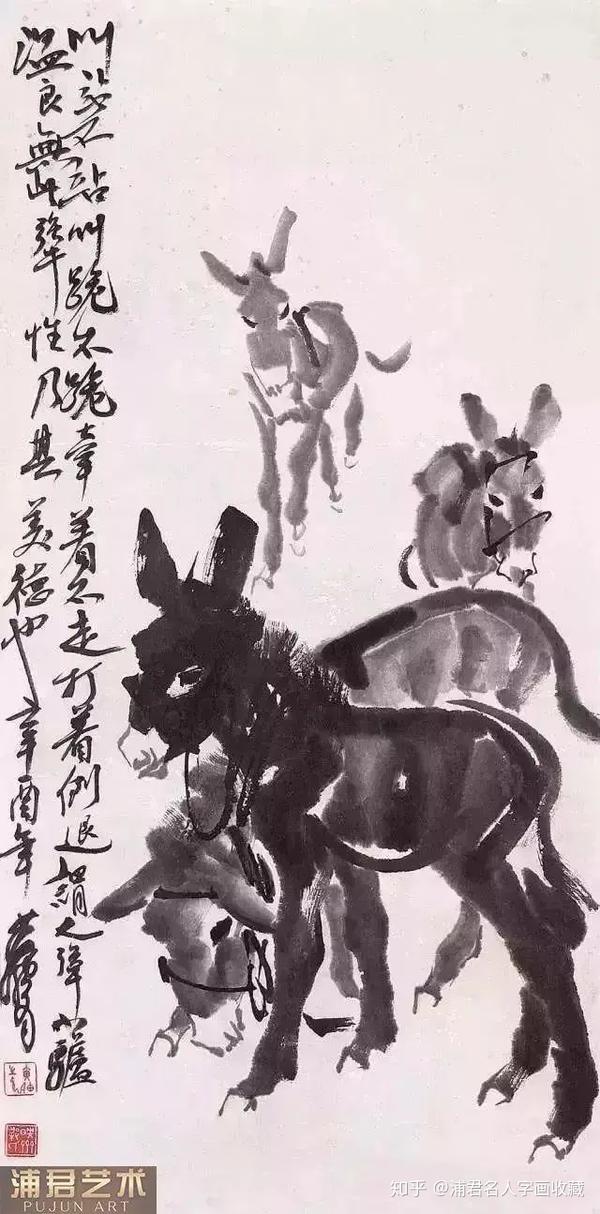 叫站不站叫跪不跪牽着不走打着倒退謂之犟小驢
温良無此犟性乃其美德也辛酉年黄胄
浦君艺术
PUJUN ART
知乎 @浦君名人字画收藏